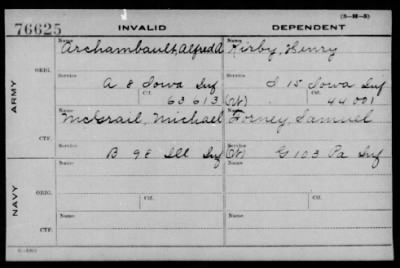 (3-M-3)
76625 INVALID DEPENDENT
Name Name
Archambault, Alfred A. Kirby, Henry
ORIG. Service Service
A 8 Iowa Inf I 15 Iowa Inf
Ctf. Ctf.
63613 (W) 44001
ARMY
Name Name
McGrail, Michael Forney, Samuel
CTF. Service Service
B 98 Ill Inf (W) G 103 Pa Inf
Name Name
NAVY
ORIG. Service Ctf. Service Ctf.
Name Name
CTF. Service Service